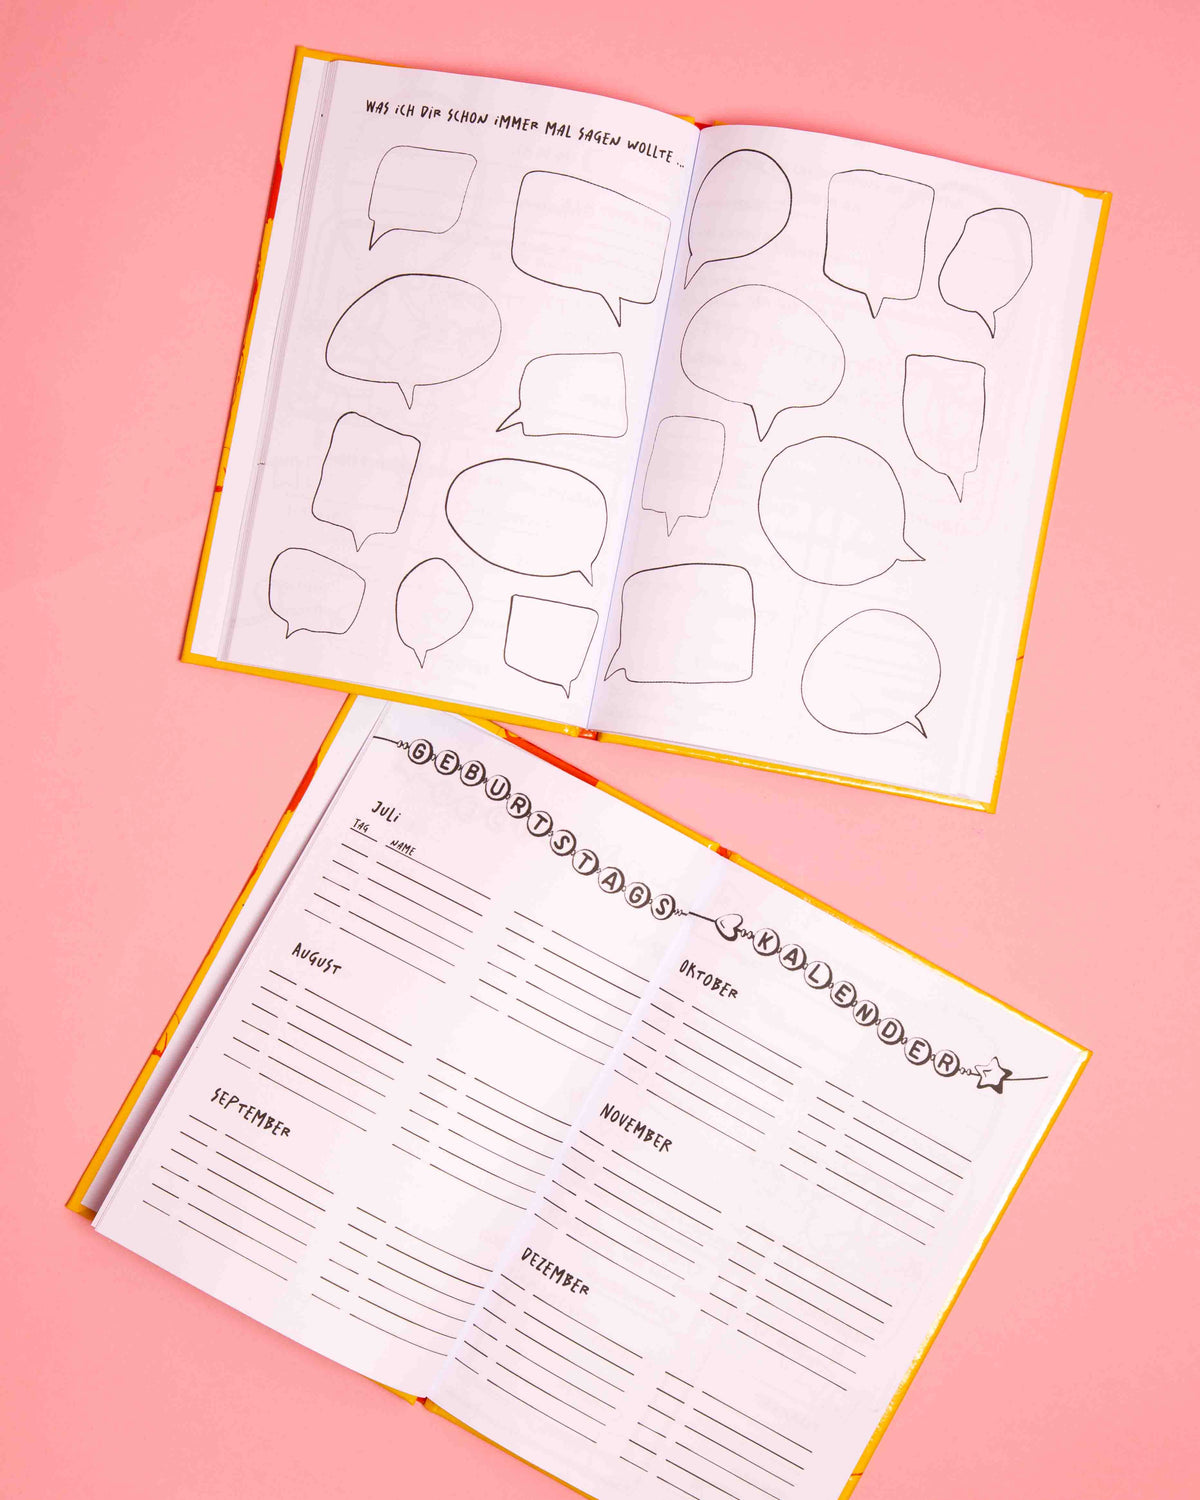 WAS iCH DiR SCHON iMMER MAL SAGEN WOLLTE ...
GEBURTSTAGS KALENDER
JULi
TAG NAME
AUGUST
SEPTEMBER
OKTOBER
NOVEMBER
DEZEMBER